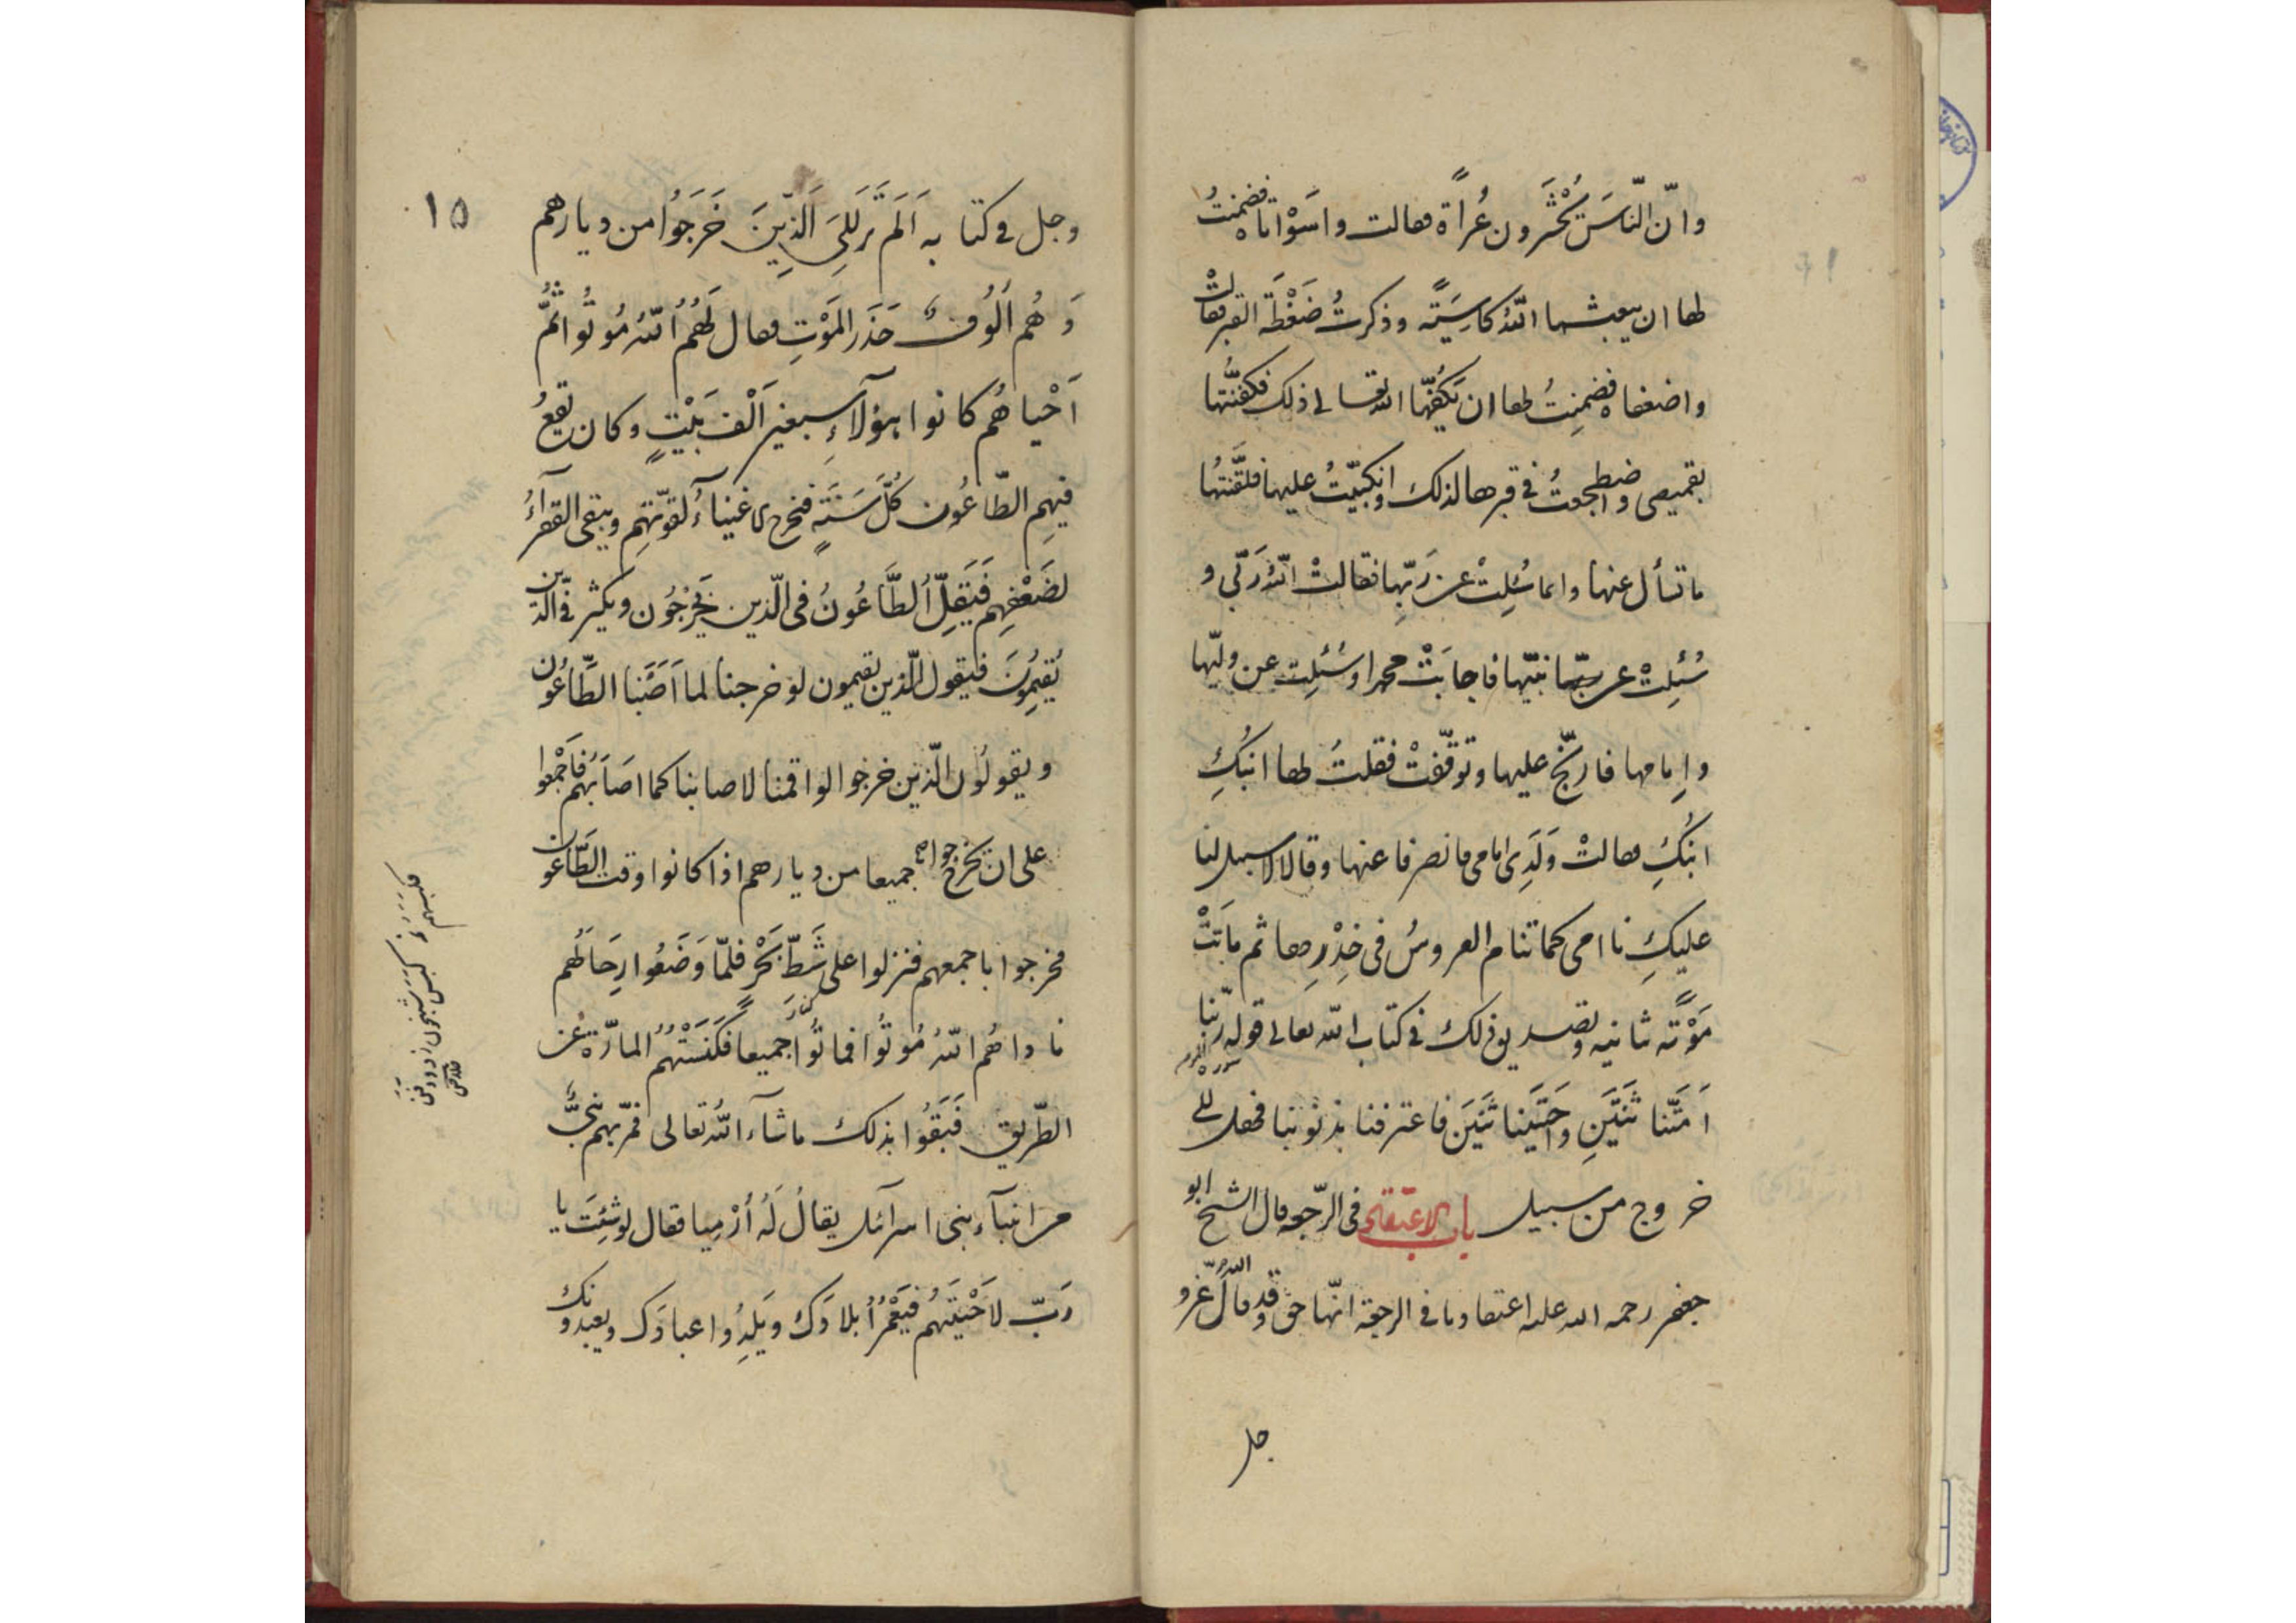 وانّ النّاسَ يُحْشَرون عُراةً فقالت واسَوْأتاه فضمنتُ
لها ان يبعثها اللّهُ كاسِيَةً وذكرتُ ضَغْطَة القبر فقالتْ
واضعفاه فضمِنتُ لها ان يَكْفِيَها اللّه تعالى ذلك فكفّنتُها
بقميصى واضطجعتُ فى قبرها لذلك وانكببتُ عليها فلقّنتُها
ما تسأل عنها وانما سُئِلتْ عن رَبّها فقالتْ اللّهُ رَبّى و
سُئِلتْ عن نبيّها فاجابَتْ محمدا وسُئِلت عن وليّها
وإمامها فارتجّ عليها وتوقّفتْ فقلتُ لها ابنُكِ
ابنُكِ فقالتْ وَلَدِى امامى فانصرفا عنها وقالا لا سبيل لنا
عليكِ نامى كما تنام العروسُ فى خِدْرِها ثم ماتَتْ
مَوْتَةً ثانيه وتصديق ذلك فى كتاب اللّه تعالى قوله ربّنا
اَمَتَّنا ثنتَينِ واَحيَيتَنا ثنتَينَ فاعترفنا بذنوبنا فهل الى
خروج من سبيل باب الاعتقاد فى الرّجعه قال الشيخ ابو
جعفر رحمه اللّه عليه اعتقادنا فى الرجعة انّها حق وقد قال اللّه عزّ و
جل
١٥
وجل فى كتابه اَلَم تَرَ اِلىَ الَّذِينَ خَرَجُوا من ديارهم
وَهُم اُلُوفٌ حَذَرَ المَوْتِ فقال لَهُمُ اللّهُ مُوتُوا ثُمَّ
اَحْياهُم كانوا هؤلآءِ سبعين اَلْف بَيْتٍ وكان يقعُ
فيهِم الطّاعُون كُلَّ سَنَةٍ فيخرج الاغنياءُ لقوّتهِم ويبقى الفقرآءُ
لضَعْفِهِم فَيَقِلّ الطّاعُونُ فى الّذين يَخرجُون ويكثر فى الّذين
يُقِيمُونَ فيقول الّذين يقيمون لو خرجنا لما اَصَابَنا الطّاعُون
ويقولُون الّذين خرجوا لو اقمنا لاصابنا كما اصَابَهُم فاَجْمعوا
على ان يخرجوا جميعا من ديارهم اذا كانوا وقت الطّاعون
فخرجوا باجمعهم فنزلوا على شَطّ بَحْرٍ فلمّا وَضَعُوا رِحَالَهُم
ناداهُم اللّهُ مُوتُوا فماتُوا جميعا فَكَنَسَتْهُمُ المارّة عن
الطّريق فَبَقُوا بذلك ما شآء اللّهُ تعالى فمّر بهم نبىٌّ
من انبيآء بنى اسرآئيل يقالُ لَهُ اَرْمِيا فقال لو شِئتَ يا
رَبّ لاَحْيَيْتَهُم فيَعْمُرُوا بلادَك ويَلِدُوا عبادَك ويعبدونك